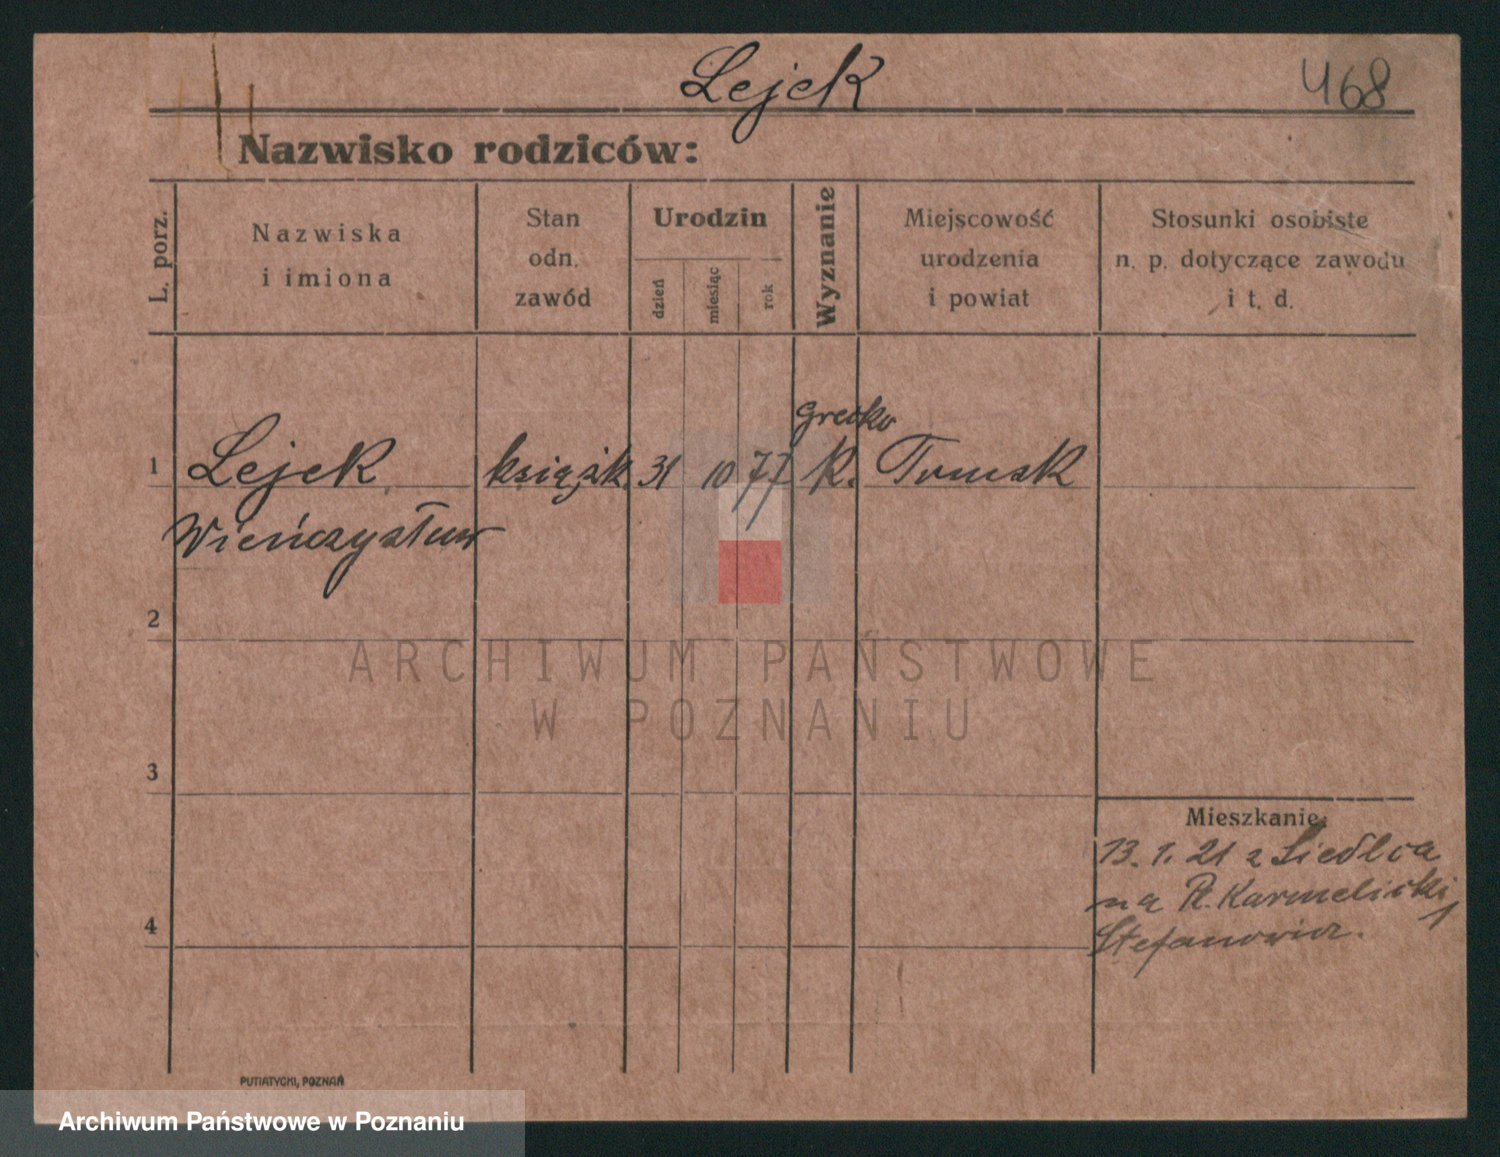 Lejek
468
Nazwisko rodziców:
L. porz.
Nazwiska
i imiona
Stan
odn.
zawód
Urodzin
dzień
miesiąc
rok
Wyznanie
Miejscowość
urodzenia
i powiat
Stosunki osobiste
n. p. dotyczące zawodu
i t. d.
grecko
1 Lejek książk. 31 10 77 k. Tomsk
Wieńczysław
2
ARCHIWUM PAŃSTWOWE
W POZNANIU
3
Mieszkanie:
13. 1. 21 z Siedlca
na Pl. Karmelicki 1
4
Stefanowicz.
PUTIATYCKI, POZNAŃ
Archiwum Państwowe w Poznaniu